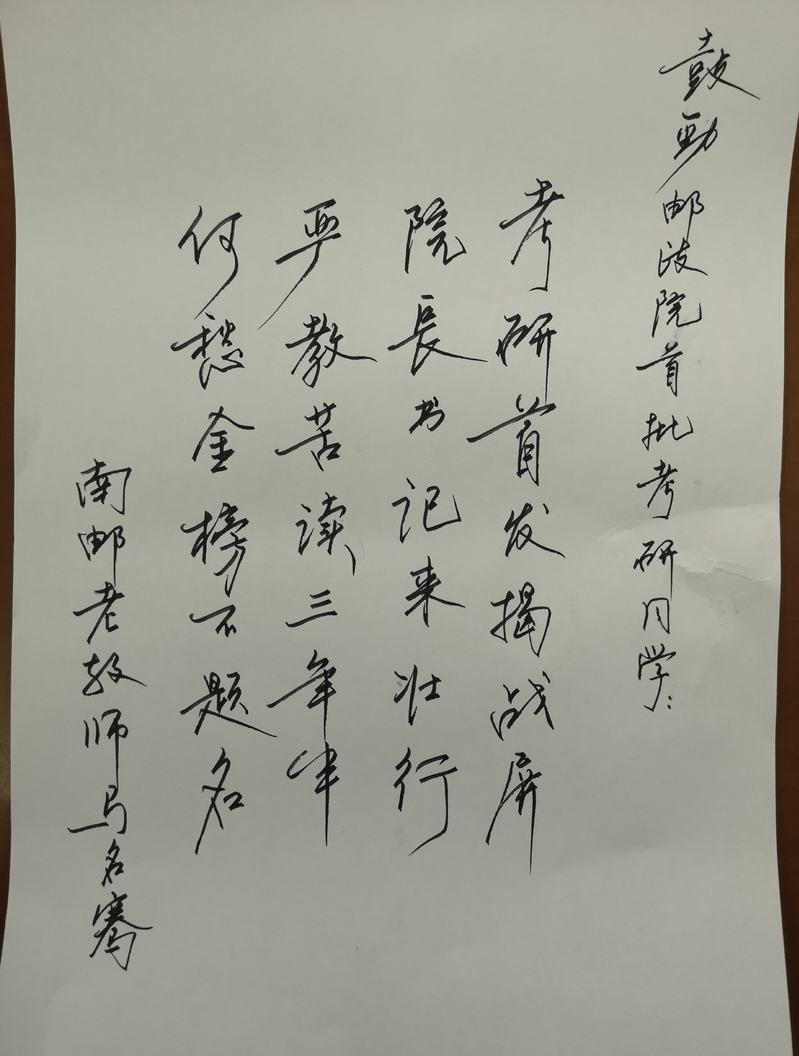 鼓劲邮政院首批考研同学：
考研首发揭战屏
院長书记来壮行
严教苦读三年半
何愁金榜不题名
南邮老教师马名骞